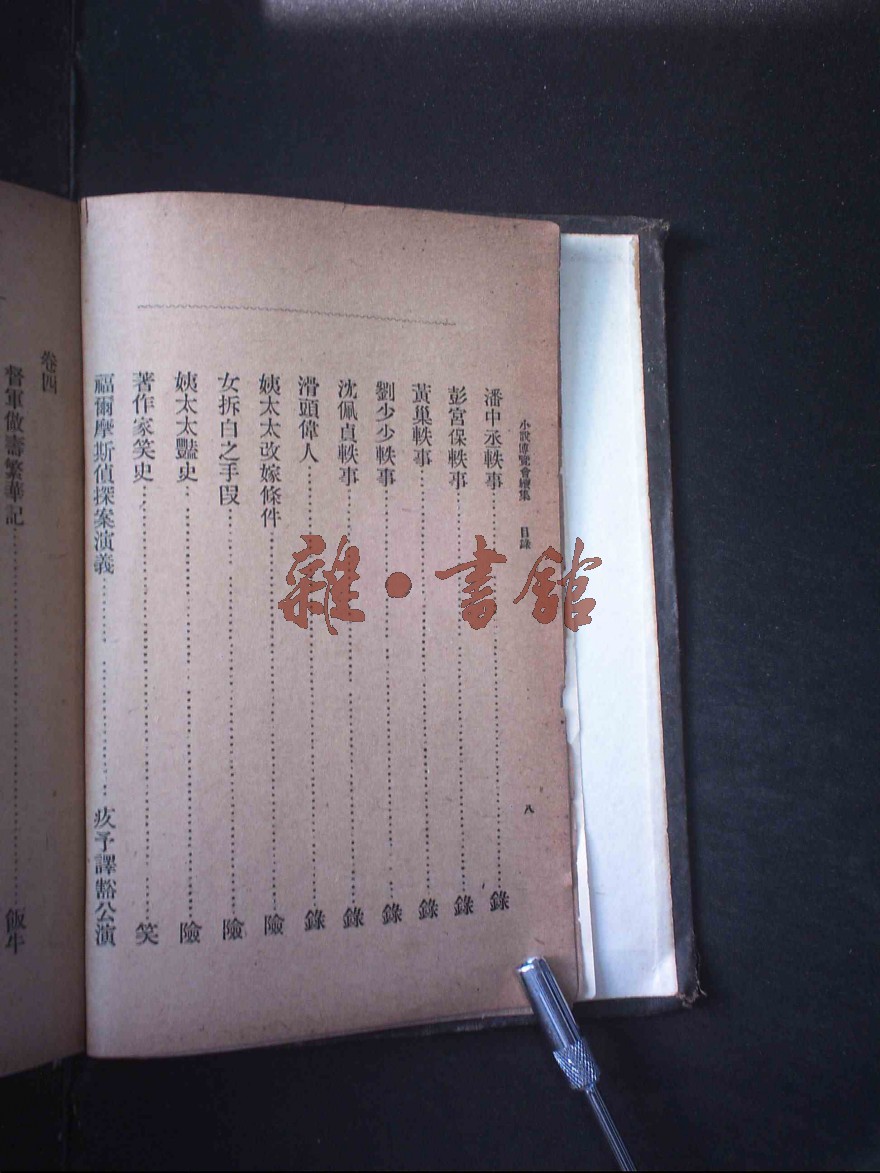 小說博覽會續集 目錄 八
潘中丞軼事 錄
彭宮保軼事 錄
黃巢軼事 錄
劉少少軼事 錄
沈佩貞軼事 錄
滑頭偉人 錄
姨太太改嫁條件 險
女拆白之手段 險
姨太太豔史 險
著作家笑史 笑
福爾摩斯偵探案演義 疚予譯豁公演
卷四
督軍做壽繁華記 飯牛
雜·書館